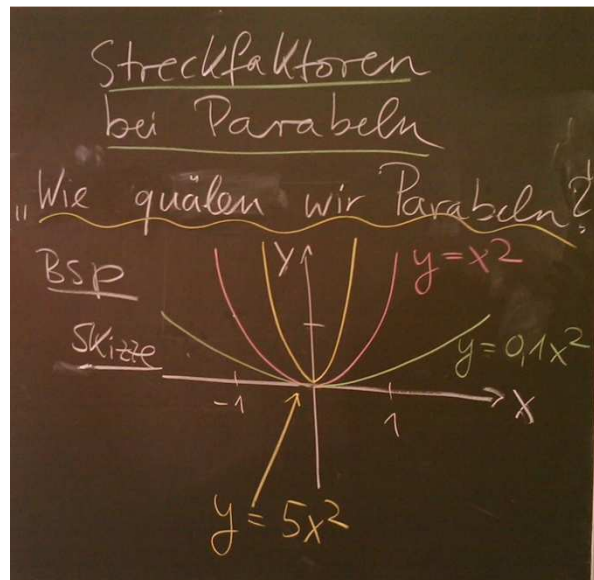 Streckfaktoren
bei Parabeln
"Wie quälen wir Parabeln?"
BSP
Skizze
y
y=x2
y=0,1x²
-1
1
x
y=5x²